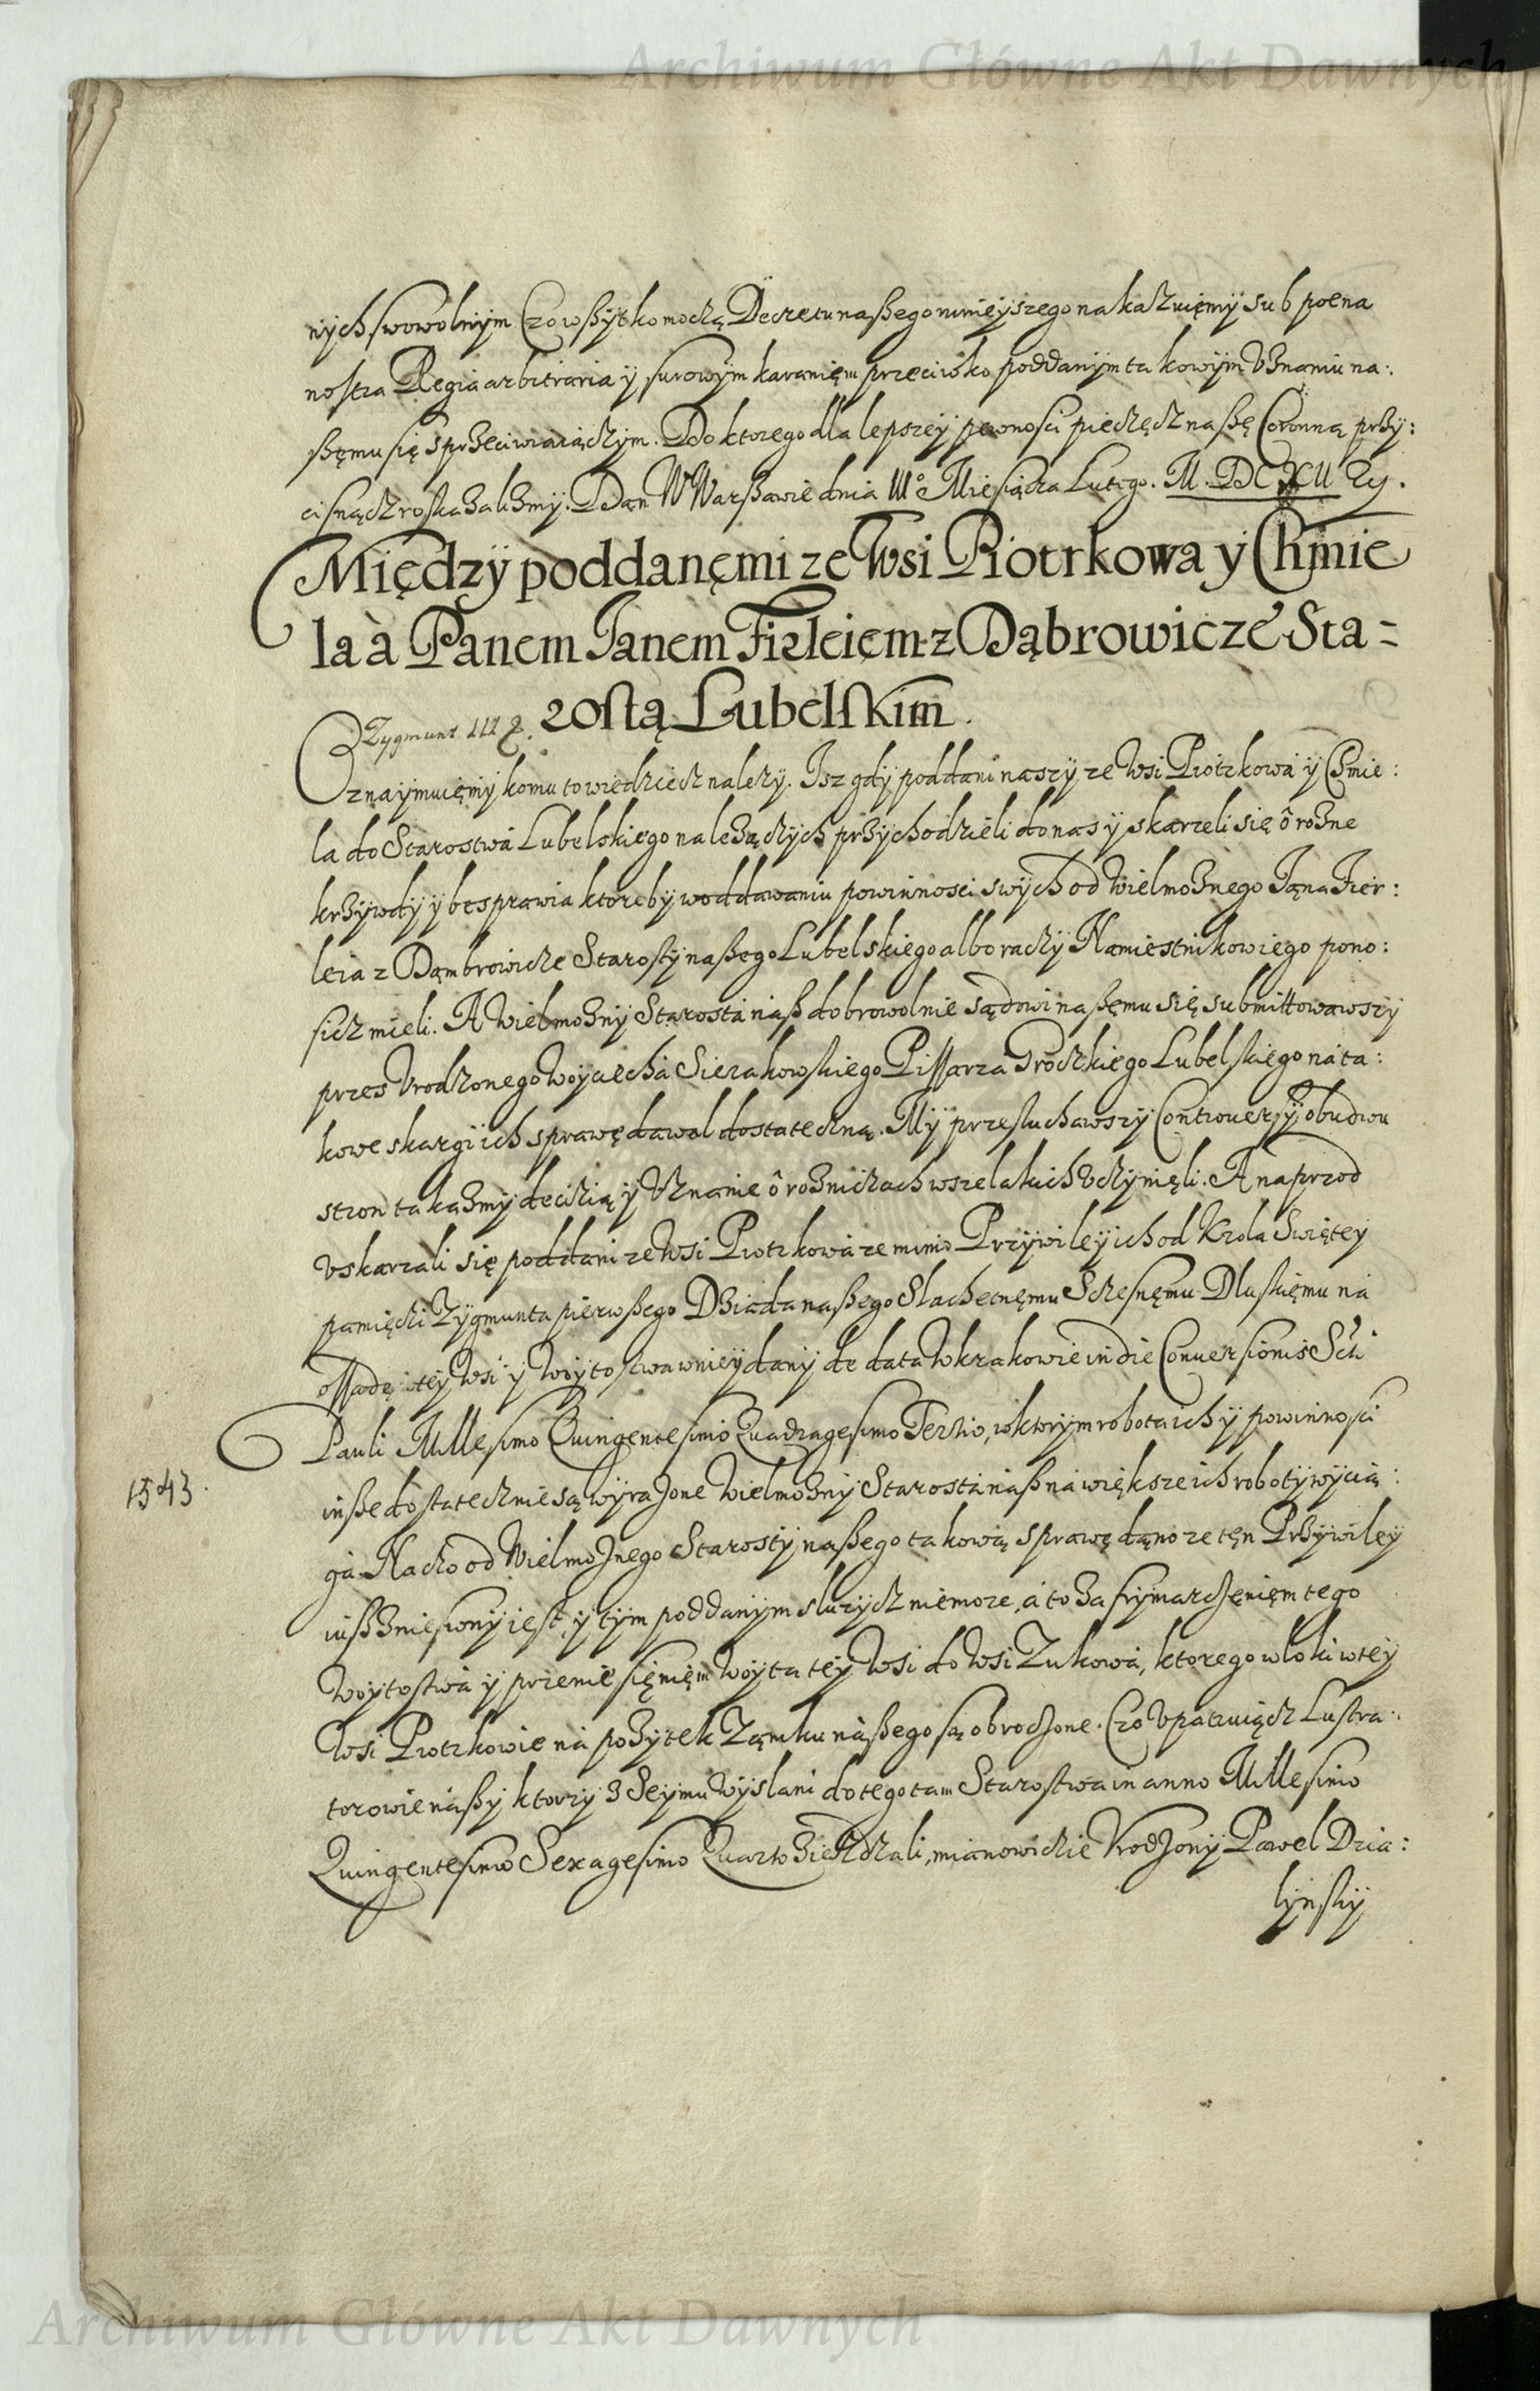 Archiwum Główne Akt Dawnych
nych swowolnÿm Czo wszÿtko moczą Decretu naszego ninieÿszego nakazuięmÿ sub poena
nostra Regia arbitraria ÿ surowÿm karanięm przeciwko poddanÿm takowÿm Uznaniu na:
szęmu się sprzeciwaiączÿm. Do ktorego dla lepszeÿ pewnosci pieczęcz naszę Coronną przÿ:
cisnącz roskazalizmÿ. Dan W Warszawie dnia III° Miesiącza Lutego. M. DC XII Rg.
Międzÿ poddanęmi ze Wsi Piotrkowa ÿ Chmie
la à Panem Janem Firleięm z Dąbrowicze Sta=
rostą Lubelskim.
Zygmunt III
Oznaÿmuięmÿ komu to wiedziecz należÿ. Isz gdÿ poddani naszÿ ze Wsi Piotrkowa ÿ Chmie:
la do Starostwa Lubelskiego należączÿch przÿchodzieli do nas ÿ skarzeli się ô rozne
krzÿwdÿ ÿ besprawia ktoreby w oddawaniu powinnosci swÿch od Wielmoznego Jana Fier:
leia z Dąmbrowicze Starostÿ naszego Lubelskiego albo raczÿ Namiestnikow iego pono:
sicz mieli. A Wielmoznÿ Starosta nasz dobrowolnie sądowi naszęmu się submittowawszÿ
przes Urodzonego Woÿciecha Sierakowskiego Pissarza Grodzkiego Lubelskiego na ta:
kowe skargi ich sprawę dawał dostateczną. Mÿ przesłuchawszÿ Controuersÿÿ obudwu
stron taką zmÿ decizią ÿ Uznanie ô roznicach wszelakich Uczÿnięli. A naprzod
Uskarzali się poddani ze Wsi Piotrkowa ze mimo Przÿwileÿ ich od Krola Swiętey
pamięczi Zÿgmunta pierwszego Dziada naszego Slachetnęmu Sczesnęmu Dluskięmu na
ossadę teÿ Wsi ÿ Woÿtostwa w nieÿ danÿ de data w Krakowie in die Conuersionis Scti
Pauli Millesimo Quingentesimo Quadragesimo Tertio, w ktorÿm robota ich ÿ powinnosci
1543.
insze dostatecznie są wÿrazone Wielmoznÿ Starosta nasz na większe ich robotÿ wÿcią:
ga. Na czo od Wielmoznego Starostÿ naszego takową sprawę dąno ze tęn Przÿwileÿ
iusz zniesionÿ iest, ÿ tÿm poddanÿm sluzÿcz nie moze, a to za frÿmarczęnięm tego
Woÿtostwa ÿ przeniesięnięm Woÿta teÿ Wsi do Wsi Zukowa, ktorego wloki w teÿ
Wsi Piotrkowie na pozÿtek Zamku naszego są obroczone. Czo Upatruiącz Lustra:
torowie naszÿ ktorzÿ z Seÿmu Wÿslani do tego tam Starostwa in anno Millesimo
Quingentesimo Sexagesimo Quarto ziezdzali, mianowicie Urodzonÿ Pawel Dzia:
lÿnskÿ
Archiwum Główne Akt Dawnych